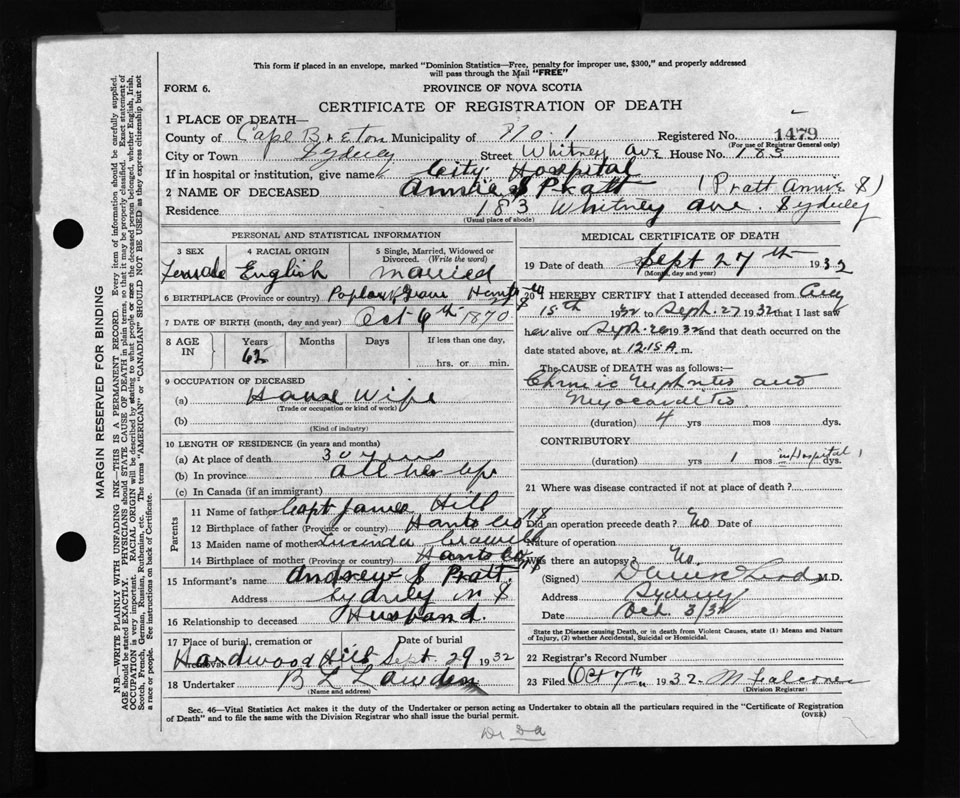 This form if placed in an envelope, marked "Dominion Statistics—Free, penalty for improper use, $300," and properly addressed
will pass through the Mail "FREE"
FORM 6.
PROVINCE OF NOVA SCOTIA
CERTIFICATE OF REGISTRATION OF DEATH
1 PLACE OF DEATH—
County of Cape Breton Municipality of No. 1 Registered No. 1479
(For use of Registrar General only)
City or Town Sydney Street Whitney Ave House No. 183
If in hospital or institution, give name City Hospital
2 NAME OF DECEASED Annie S Pratt (Pratt Annie S)
Residence 183 Whitney Ave. Sydney
(Usual place of abode)
PERSONAL AND STATISTICAL INFORMATION
3 SEX Female
4 RACIAL ORIGIN English
5 Single, Married, Widowed or Divorced. (Write the word) Married
6 BIRTHPLACE (Province or country) Poplar Grove Hants Co
7 DATE OF BIRTH (month, day and year) Oct 6th 1870
8 AGE IN Years 62 Months Days If less than one day, hrs. or min.
9 OCCUPATION OF DECEASED
(a) House Wife
(Trade or occupation or kind of work)
(b)
(Kind of industry)
10 LENGTH OF RESIDENCE (in years and months)
(a) At place of death 30 years
(b) In province all her life
(c) In Canada (if an immigrant)
Parents
11 Name of father Capt James Hill
12 Birthplace of father (Province or country) Hants Co N S
13 Maiden name of mother Lucinda
14 Birthplace of mother (Province or country) Hants Co N S
15 Informant's name Andrew S Pratt
Address Sydney N S
16 Relationship to deceased Husband.
17 Place of burial, cremation or removal Hardwood Hill Date of burial Sept. 29 1932
18 Undertaker B L Lawden
(Name and address)
MEDICAL CERTIFICATE OF DEATH
19 Date of death Sept 27th 1932
(Month, day and year)
20 I HEREBY CERTIFY that I attended deceased from Aug
15th 1932 to Sept. 27 1932 that I last saw
her alive on Sept. 26 1932 and that death occurred on the
date stated above, at 12.15 A. m.
The CAUSE OF DEATH was as follows:—
Chronic Nephritis and
Myocarditis
(duration) 4 yrs mos dys.
CONTRIBUTORY
(duration) yrs 1 mos in Hospital dys.
21 Where was disease contracted if not at place of death?
Did an operation precede death? No Date of
Nature of operation
Was there an autopsy? No.
(Signed) M.D.
Address Sydney
Date Oct 3/32
State the Disease causing Death, or in death from Violent Causes, state (1) Means and Nature
of Injury, (2) whether Accidental, Suicidal or Homicidal.
22 Registrar's Record Number
23 Filed Oct 7th 1932. M Falconer
(Division Registrar)
Sec. 46—Vital Statistics Act makes it the duty of the Undertaker or person acting as Undertaker to obtain all the particulars required in the "Certificate of Registration
of Death" and to file the same with the Division Registrar who shall issue the burial permit.
(OVER)
MARGIN RESERVED FOR BINDING
N.B.—WRITE PLAINLY WITH UNFADING INK—THIS IS A PERMANENT RECORD. Every item of information should be carefully supplied.
AGE should be stated EXACTLY. PHYSICIANS should STATE CAUSE OF DEATH in plain terms, so that it may be properly classified. Exact statement of
OCCUPATION is very important. RACIAL ORIGIN will be described by stating to what people or race the deceased person belonged, whether English, Irish,
Scotch, French, German, Russian, Ruthenian, etc. The terms "AMERICAN" or "CANADIAN" SHOULD NOT BE USED as they express citizenship but not
a race or people. See instructions on back of Certificate.